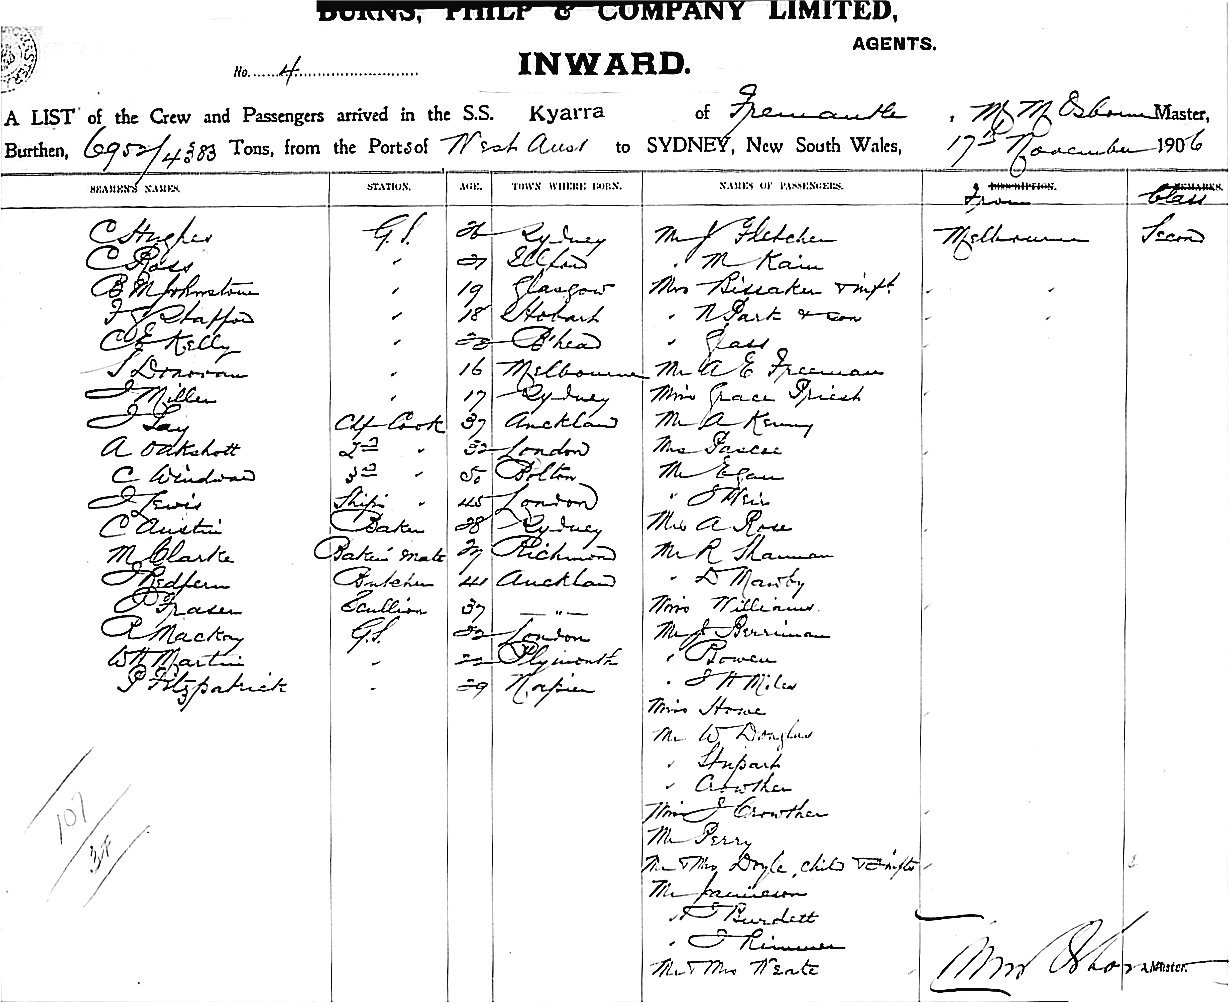 BURNS, PHILP & COMPANY LIMITED,
AGENTS.
INWARD.
No. 4
A LIST of the Crew and Passengers arrived in the S.S. Kyarra of Fremantle, Wm Osborne Master,
Burthen, 6952/4383 Tons, from the Ports of West Aust to SYDNEY, New South Wales, 17th November 1906
SEAMEN'S NAMES. STATION. AGE. TOWN WHERE BORN. NAMES OF PASSENGERS. DESCRIPTION. From REMARKS. Class
C Hughes G.S. 26 Sydney Mr J Fletcher Melbourne Second
C Ross " 27 Ilford " M Kain
B McJohnstone " 19 Glasgow Mrs Bissaker & inft. " "
F J Stafford " 18 Hobart " N Park & son " "
C E Kelly " B'head " Glass
S Donovan " 16 Melbourne Mr A E Freeman
J Miller " 17 Sydney Miss Grace Priest
J Lay Chf Cook 37 Auckland Mr A Kenny
A Oakshott 2nd " 32 London Mrs Pascoe
C Windward 3rd " 50 Bolton Mr Egan
J Lewis Ship's " 45 London " J Weir
C Austin Baker 28 Sydney Mrs A Rose
M Clarke Bakers Mate 27 Richmond Mr R Shannan
J Redfern Butcher 41 Auckland " D Mawby
P Fraser Scullion 37 — " — Miss Williams.
R Mackay G.S. 22 London Mr J Berriman
W H Martin " 22 Plymouth " Bowen
P Fitzpatrick " 29 Napier " J H Miles
Miss Howe
Mr W Douglas
" Stupart
" Crowther
Miss J Crowther
Mr Perry
Mr & Mrs Doyle, child & infts
Mr Jamieson
" A J Burdett
" J Rimmer
Mr & Mrs Neate
107
38
Wm Osborne Master.